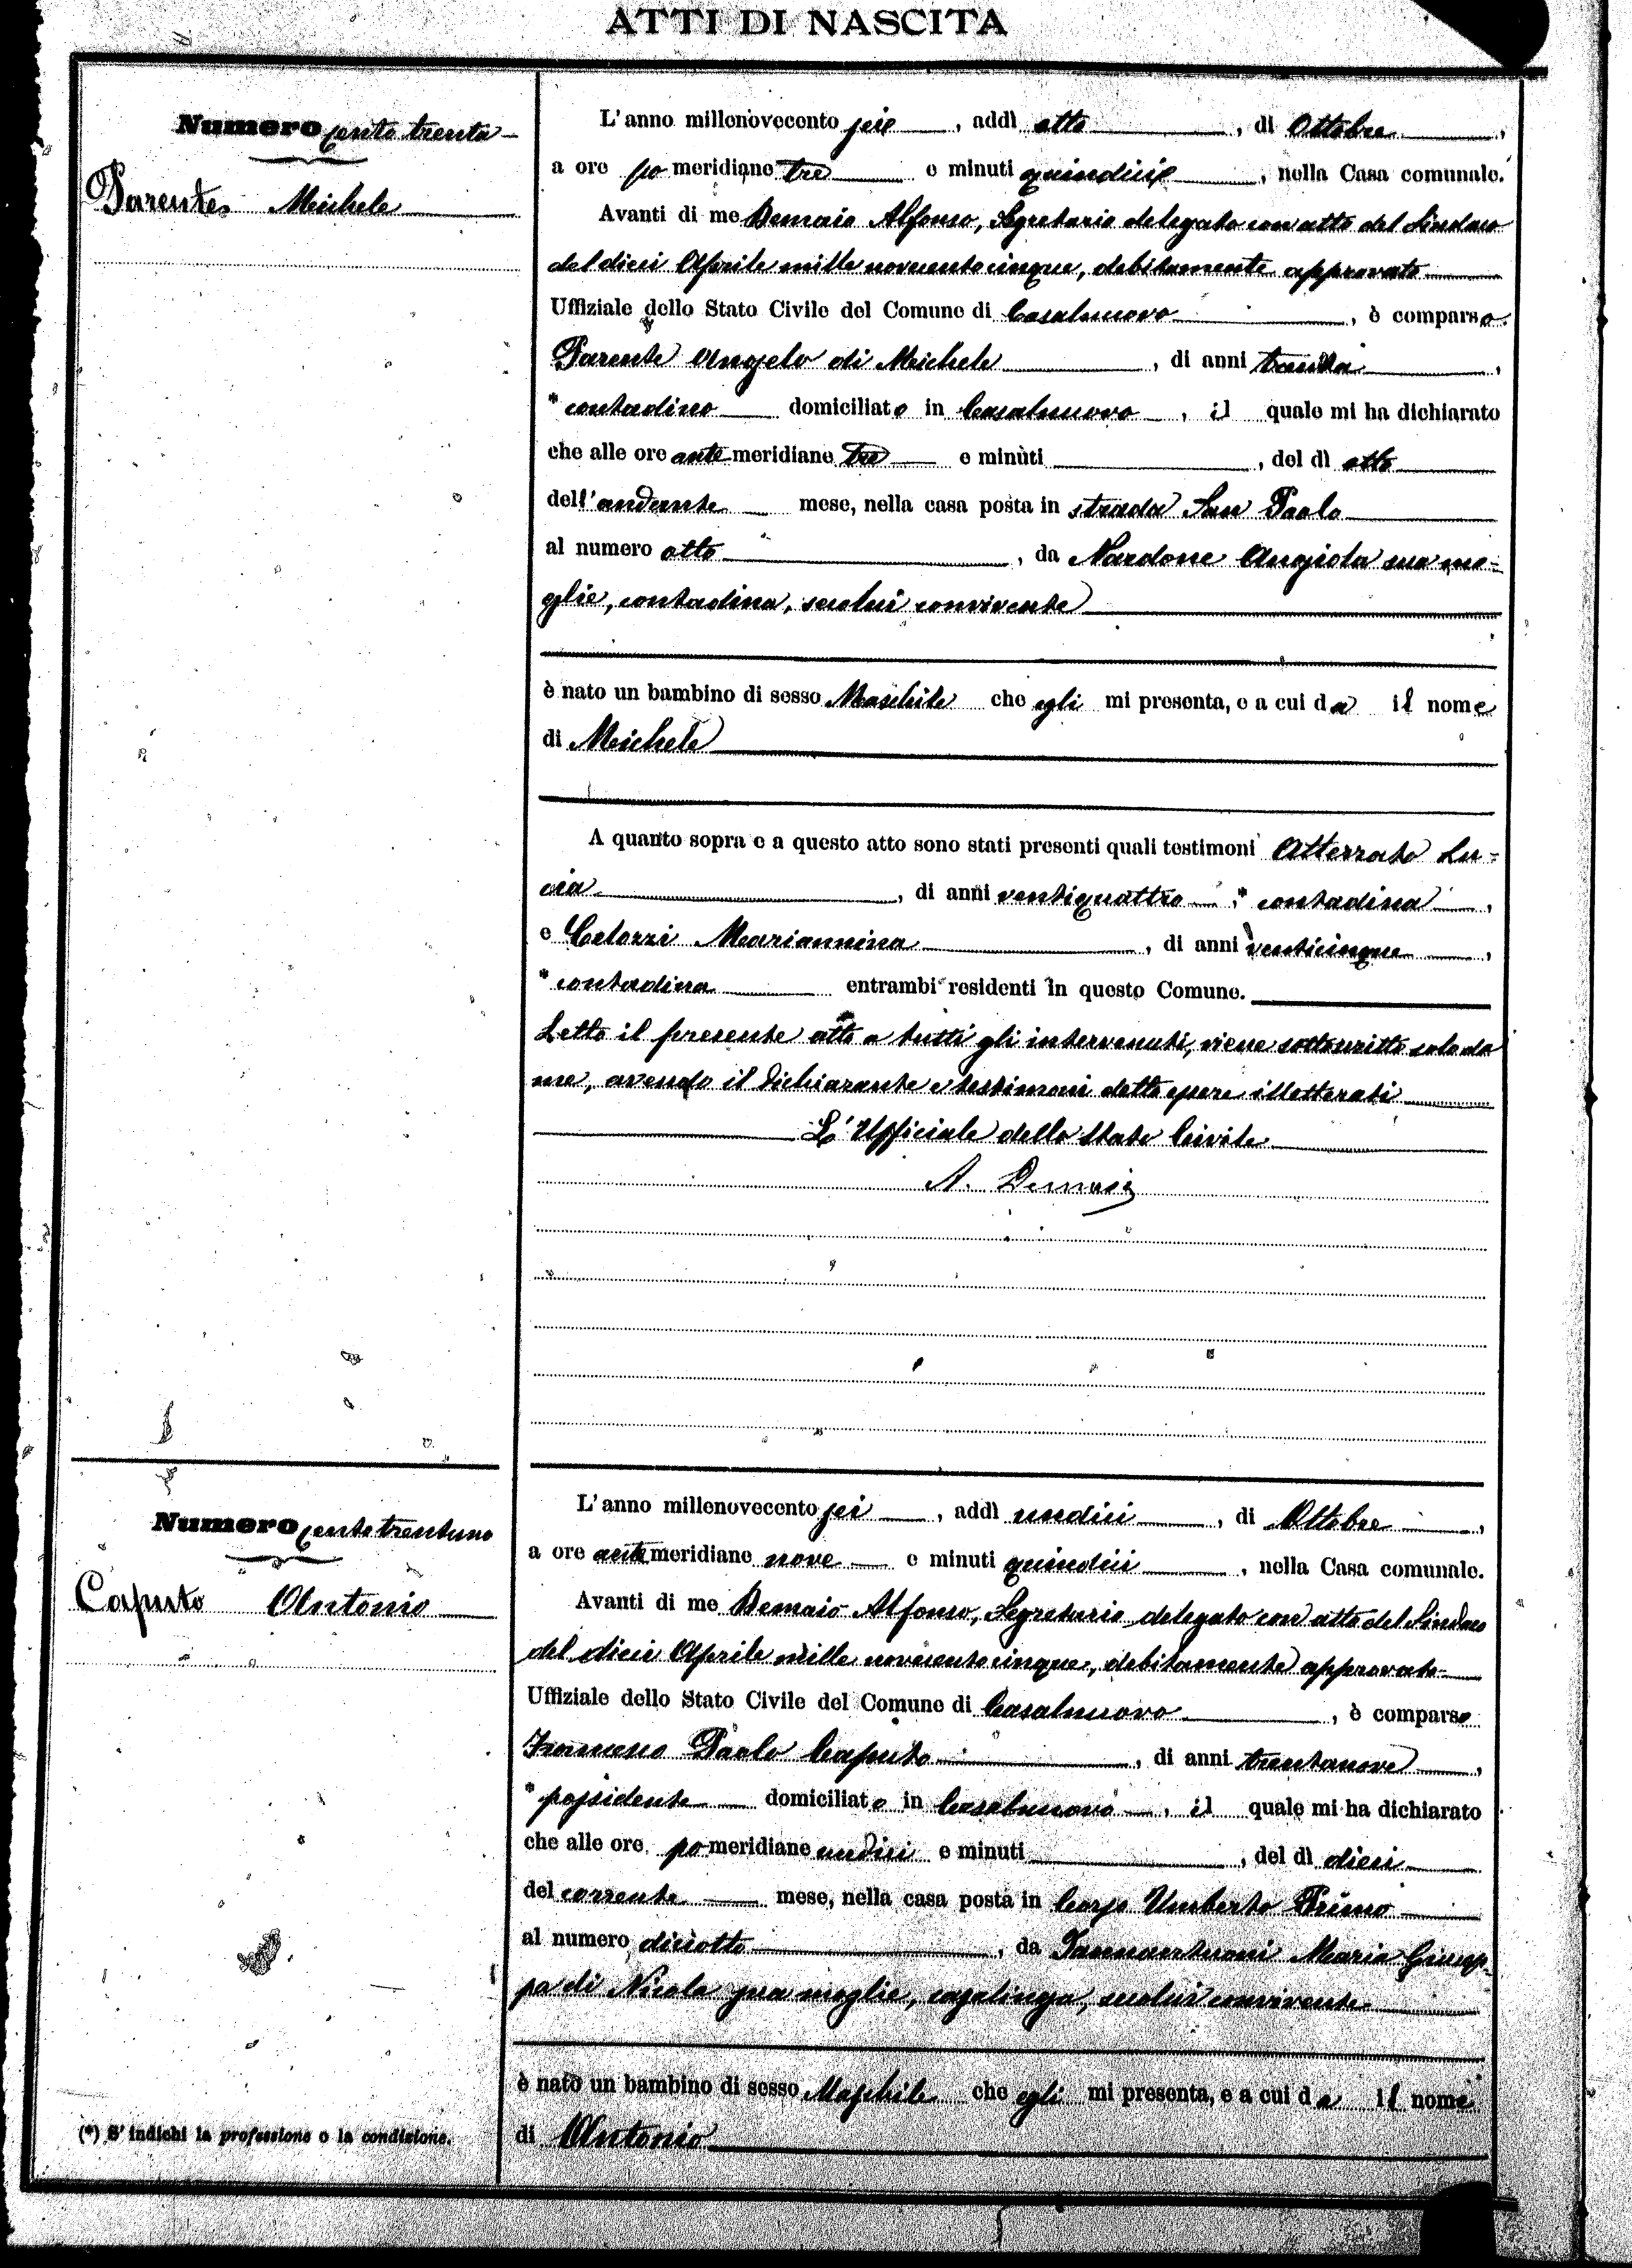 ATTI DI NASCITA
Numero cento trenta
Parente Michele
L'anno millenovecento sei, addì otto, di Ottobre,
a ore pomeridiane tre e minuti quindici, nella Casa comunale.
Avanti di me Demaio Alfonso, Segretario delegato con atto del Sindaco
del dieci Aprile mille novecento cinque, debitamente approvato
Uffiziale dello Stato Civile del Comune di Casalnuovo, è comparso
Parente Angelo di Michele, di anni trenta,
* contadino domiciliato in Casalnuovo, il quale mi ha dichiarato
che alle ore antemeridiane tre e minuti, del dì otto
dell'andante mese, nella casa posta in strada San Paolo
al numero otto, da Nardone Angiola sua mo-
glie, contadina, secolui convivente
è nato un bambino di sesso Maschile che egli mi presenta, e a cui da il nome
di Michele
A quanto sopra e a questo atto sono stati presenti quali testimoni Atterrato Lu-
cia, di anni ventiquattro, * contadina,
e Celozzi Mariannina, di anni venticinque,
* contadina entrambi residenti in questo Comune.
Letto il presente atto a tutti gli intervenuti, viene sottoscritto solo da
me, avendo il dichiarante e testimoni detto essere illetterati
L'Ufficiale dello Stato Civile
A. Demaio
Numero cento trentuno
Caputo Antonio
L'anno millenovecento sei, addì undici, di Ottobre,
a ore antemeridiane nove e minuti quindici, nella Casa comunale.
Avanti di me Demaio Alfonso, Segretario delegato con atto del Sindaco
del dieci Aprile mille novecento cinque, debitamente approvato
Uffiziale dello Stato Civile del Comune di Casalnuovo, è comparso
Paolo Caputo, di anni trentanove,
* possidente domiciliato in Casalnuovo, il quale mi ha dichiarato
che alle ore pomeridiane undici e minuti, del dì dieci
del corrente mese, nella casa posta in Corso Umberto Primo
al numero diciotto, da Iannantuoni Maria Giusep-
pa di Nicola sua moglie, casalinga, secolui convivente
è nato un bambino di sesso Maschile che egli mi presenta, e a cui da il nome
di Antonio
(*) S'indichi la professione o la condizione.